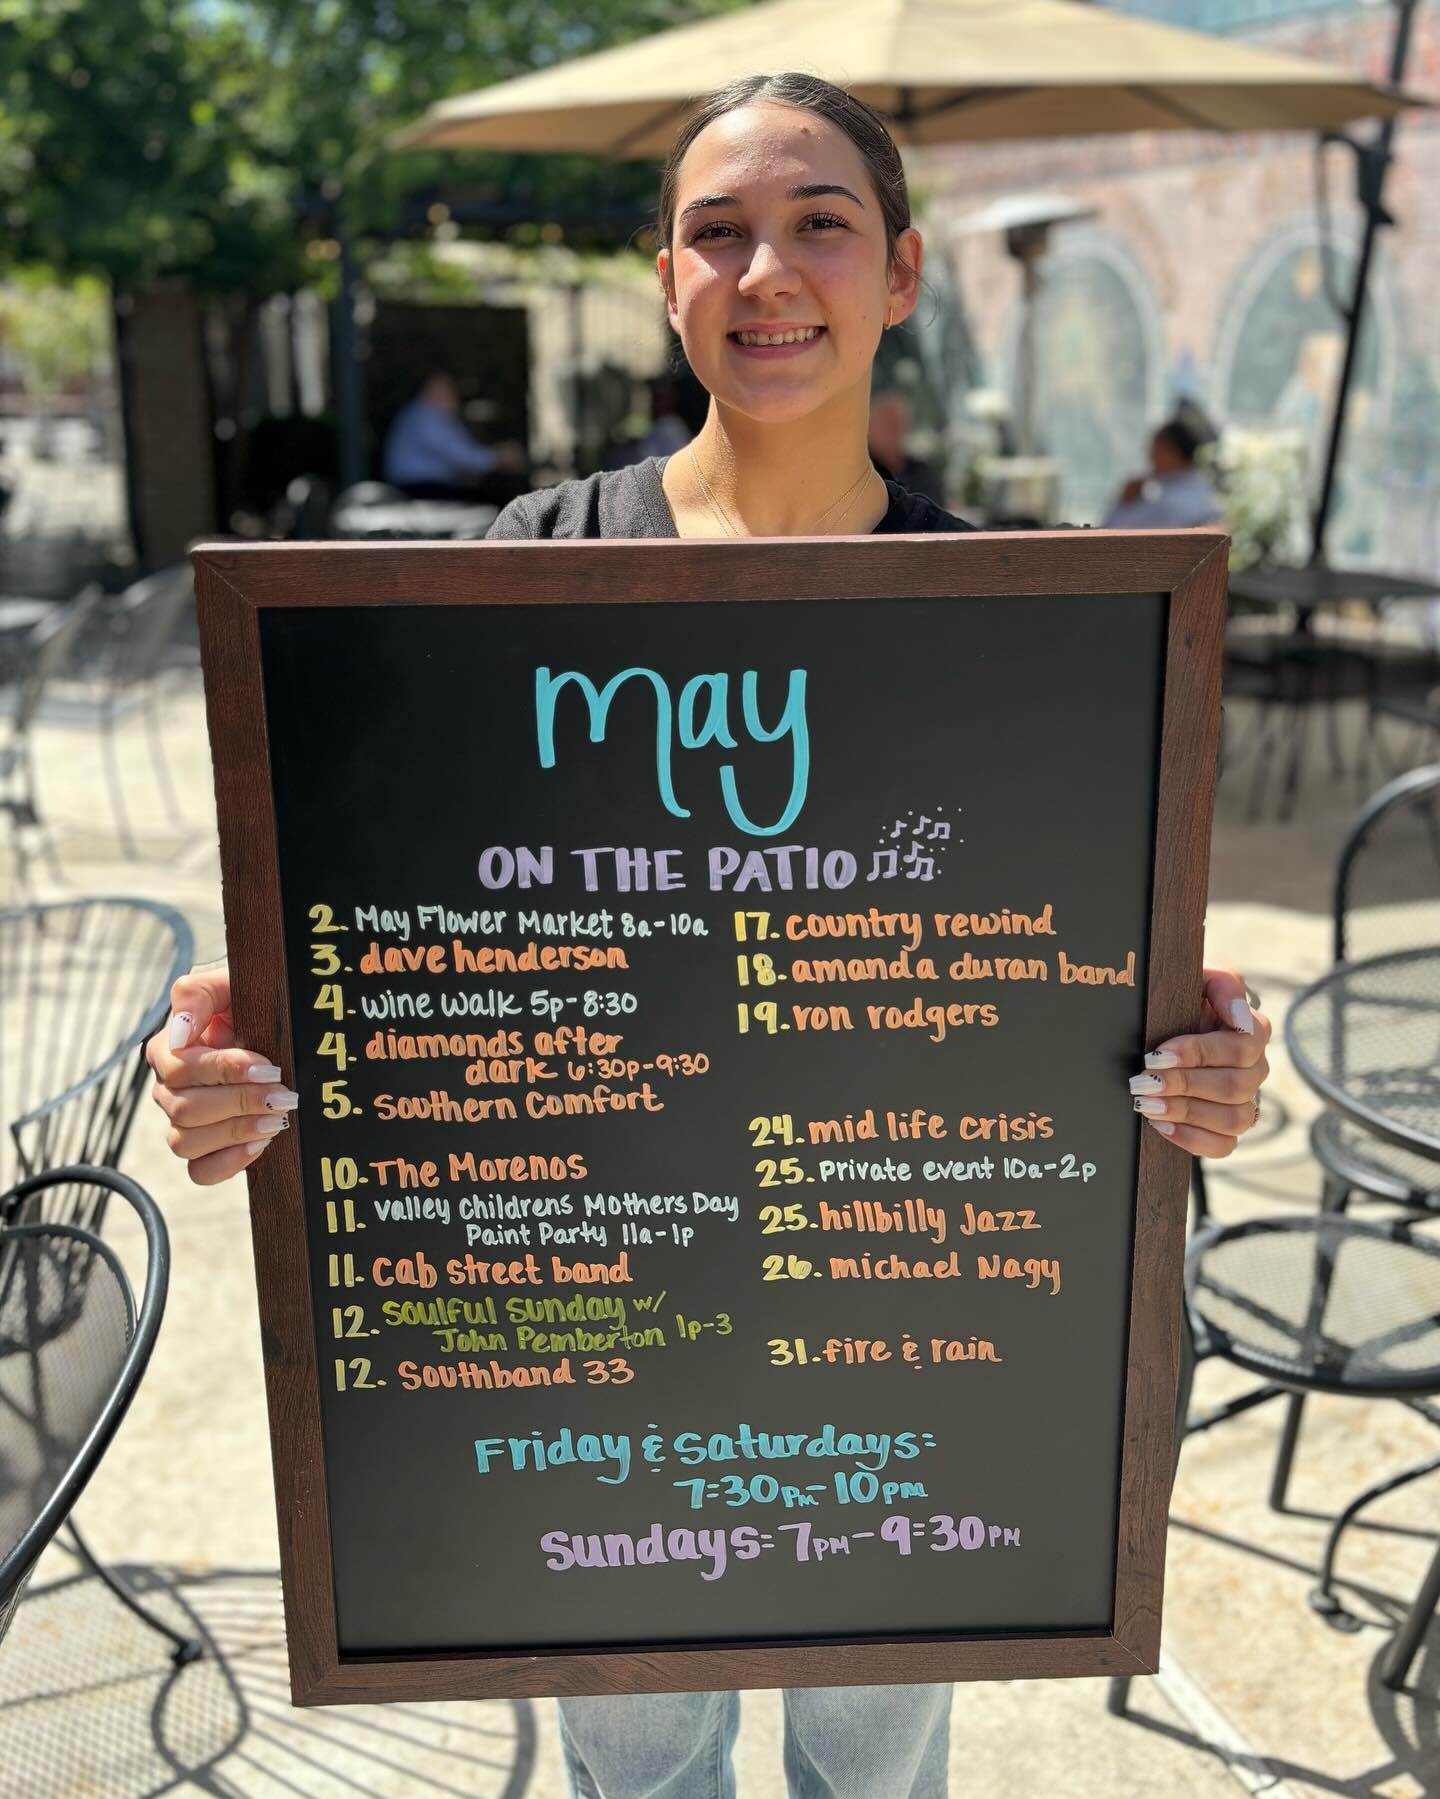 may
ON THE PATIO
2. May Flower Market 8a-10a
3. dave henderson
4. wine walk 5p-8:30
4. diamonds after
dark 6:30p-9:30
5. Southern Comfort
10. The Morenos
11. Valley Childrens Mothers Day
Paint Party 11a-1p
11. Cab street band
12. Soulful Sunday w/
John Pemberton 1p-3
12. Southband 33
17. country rewind
18. amanda duran band
19. ron rodgers
24. mid life crisis
25. Private event 10a-2p
25. hillbilly Jazz
26. michael Nagy
31. fire & rain
Friday & Saturdays:
7:30PM-10PM
Sundays: 7PM-9:30PM